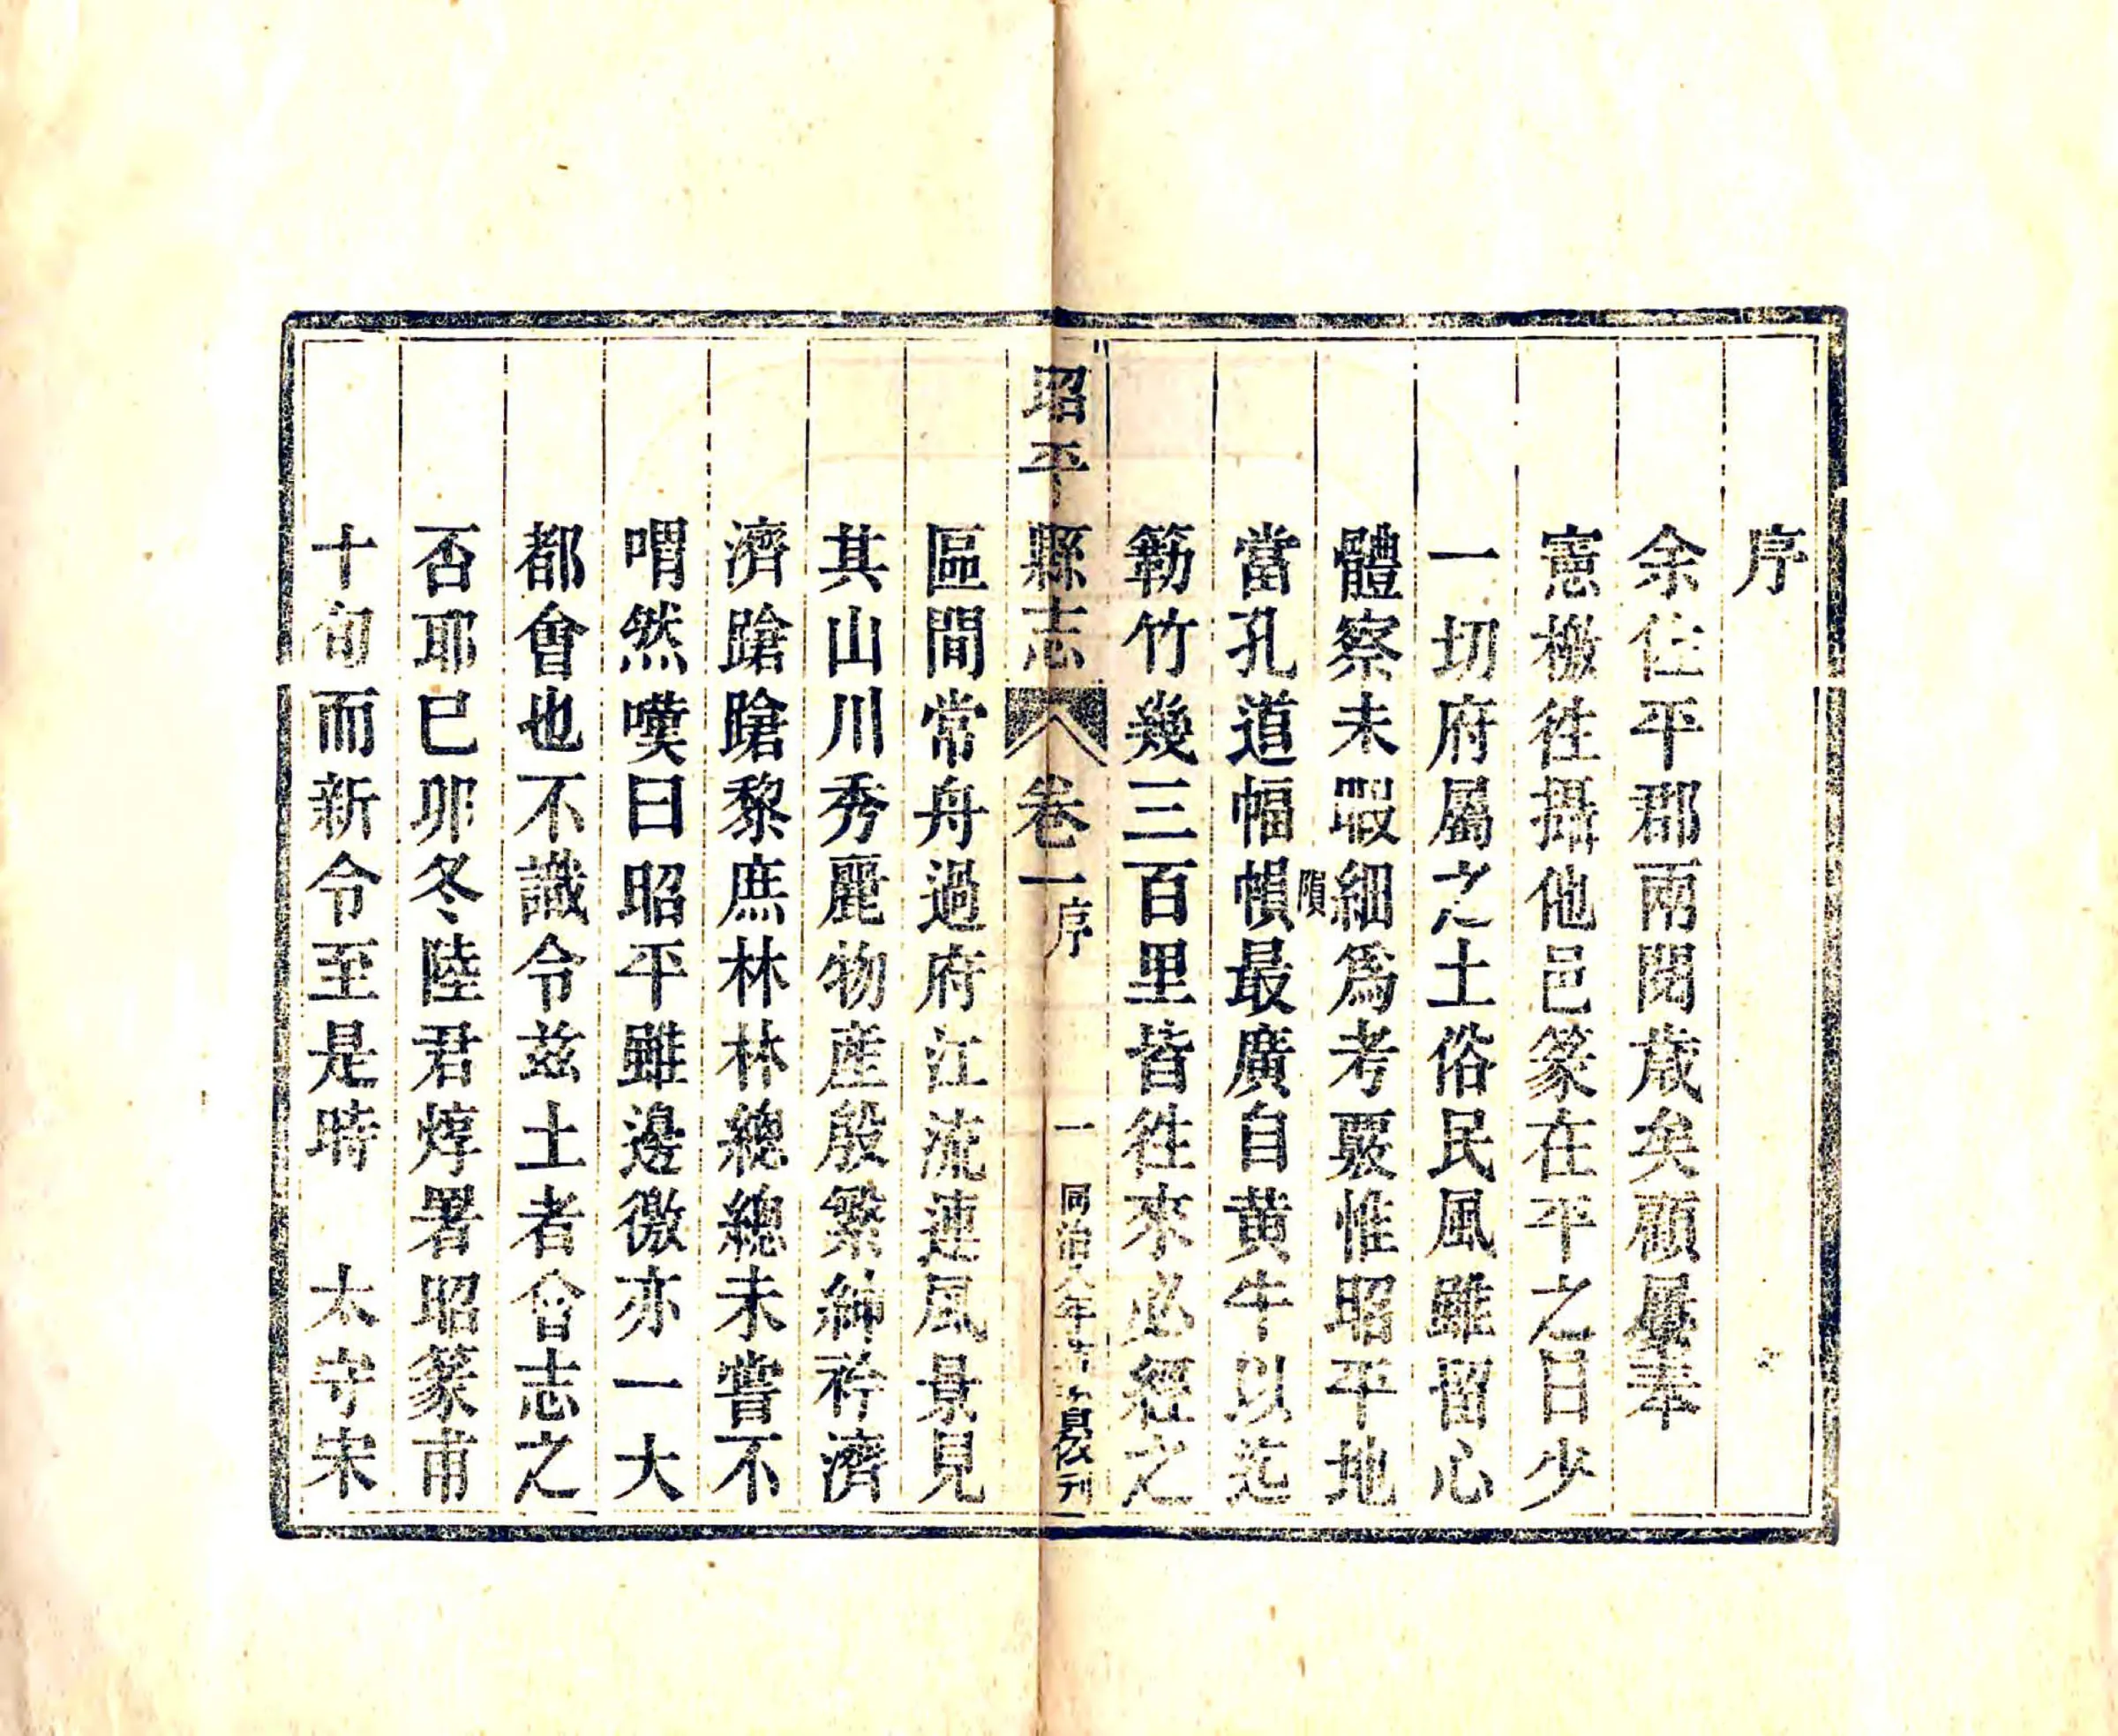 序
余住平郡兩閱歲矣顧屢奉
憲檄徃攝他邑篆在平之日少
一切府屬之土俗民風雖留心
體察未暇細爲考覈惟昭平地
隕
當孔道幅幀最廣自黄牛以迄
簕竹幾三百里皆徃來必經之
昭平縣志 卷一序 一 同治 年 刊
區間常舟過府江流連風景見
其山川秀麗物產殷繁紳衿濟
濟蹌蹌黎庶林林總總未嘗不
喟然嘆曰昭平雖邊徼亦一大
都會也不識令茲土者會志之
否耶巳夘冬陸君焞署昭篆甫
十旬而新令至是時 太守宋